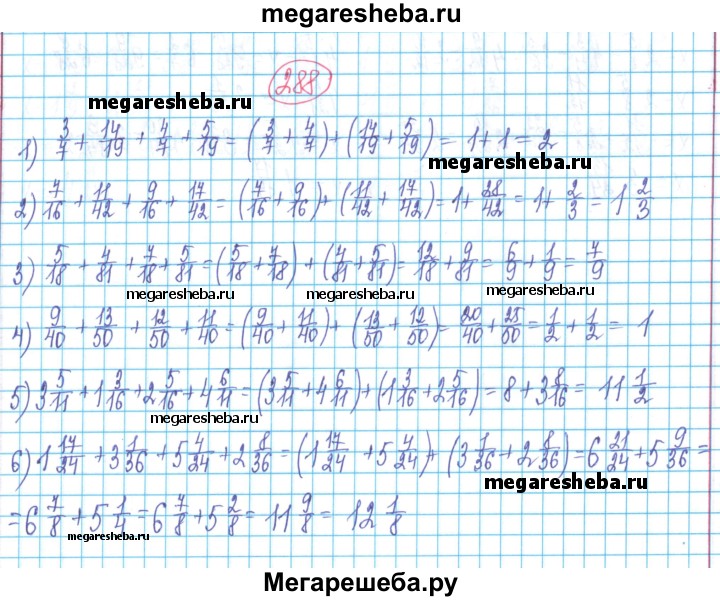 megaresheba.ru
288
megaresheba.ru
1) 3/7 + 14/19 + 4/7 + 5/19 = (3/7 + 4/7) + (14/19 + 5/19) = 1 + 1 = 2
megaresheba.ru
2) 7/16 + 11/42 + 9/16 + 17/42 = (7/16 + 9/16) + (11/42 + 17/42) = 1 + 28/42 = 1 + 2/3 = 1 2/3
3) 5/18 + 4/81 + 7/18 + 5/81 = (5/18 + 7/18) + (4/81 + 5/81) = 12/18 + 9/81 = 6/9 + 1/9 = 7/9
megaresheba.ru megaresheba.ru megaresheba.ru
4) 9/40 + 13/50 + 12/50 + 11/40 = (9/40 + 11/40) + (13/50 + 12/50) = 20/40 + 25/50 = 1/2 + 1/2 = 1
5) 3 5/11 + 1 3/16 + 2 5/16 + 4 6/11 = (3 5/11 + 4 6/11) + (1 3/16 + 2 5/16) = 8 + 3 8/16 = 11 1/2
megaresheba.ru
6) 1 17/24 + 3 1/36 + 5 4/24 + 2 8/36 = (1 17/24 + 5 4/24) + (3 1/36 + 2 8/36) = 6 21/24 + 5 9/36 =
megaresheba.ru
= 6 7/8 + 5 1/4 = 6 7/8 + 5 2/8 = 11 9/8 = 12 1/8
megaresheba.ru
Мегарешеба.ру